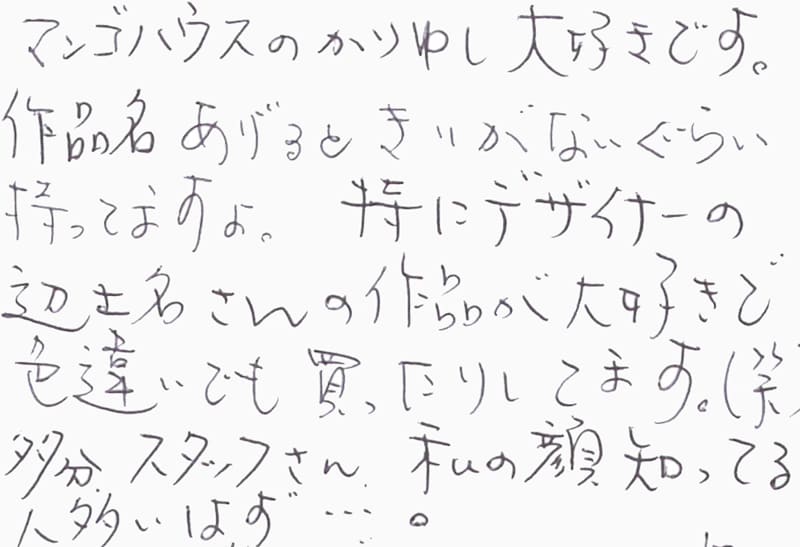 マンゴハウスのかりゆし大好きです。
作品名あげるときりがないぐらい
持ってますよ。特にデザイナーの
辺土名さんの作品が大好きで
色違いでも買ったりしてます。(笑)
多分スタッフさん、私の顔知ってる
人多いはず…。